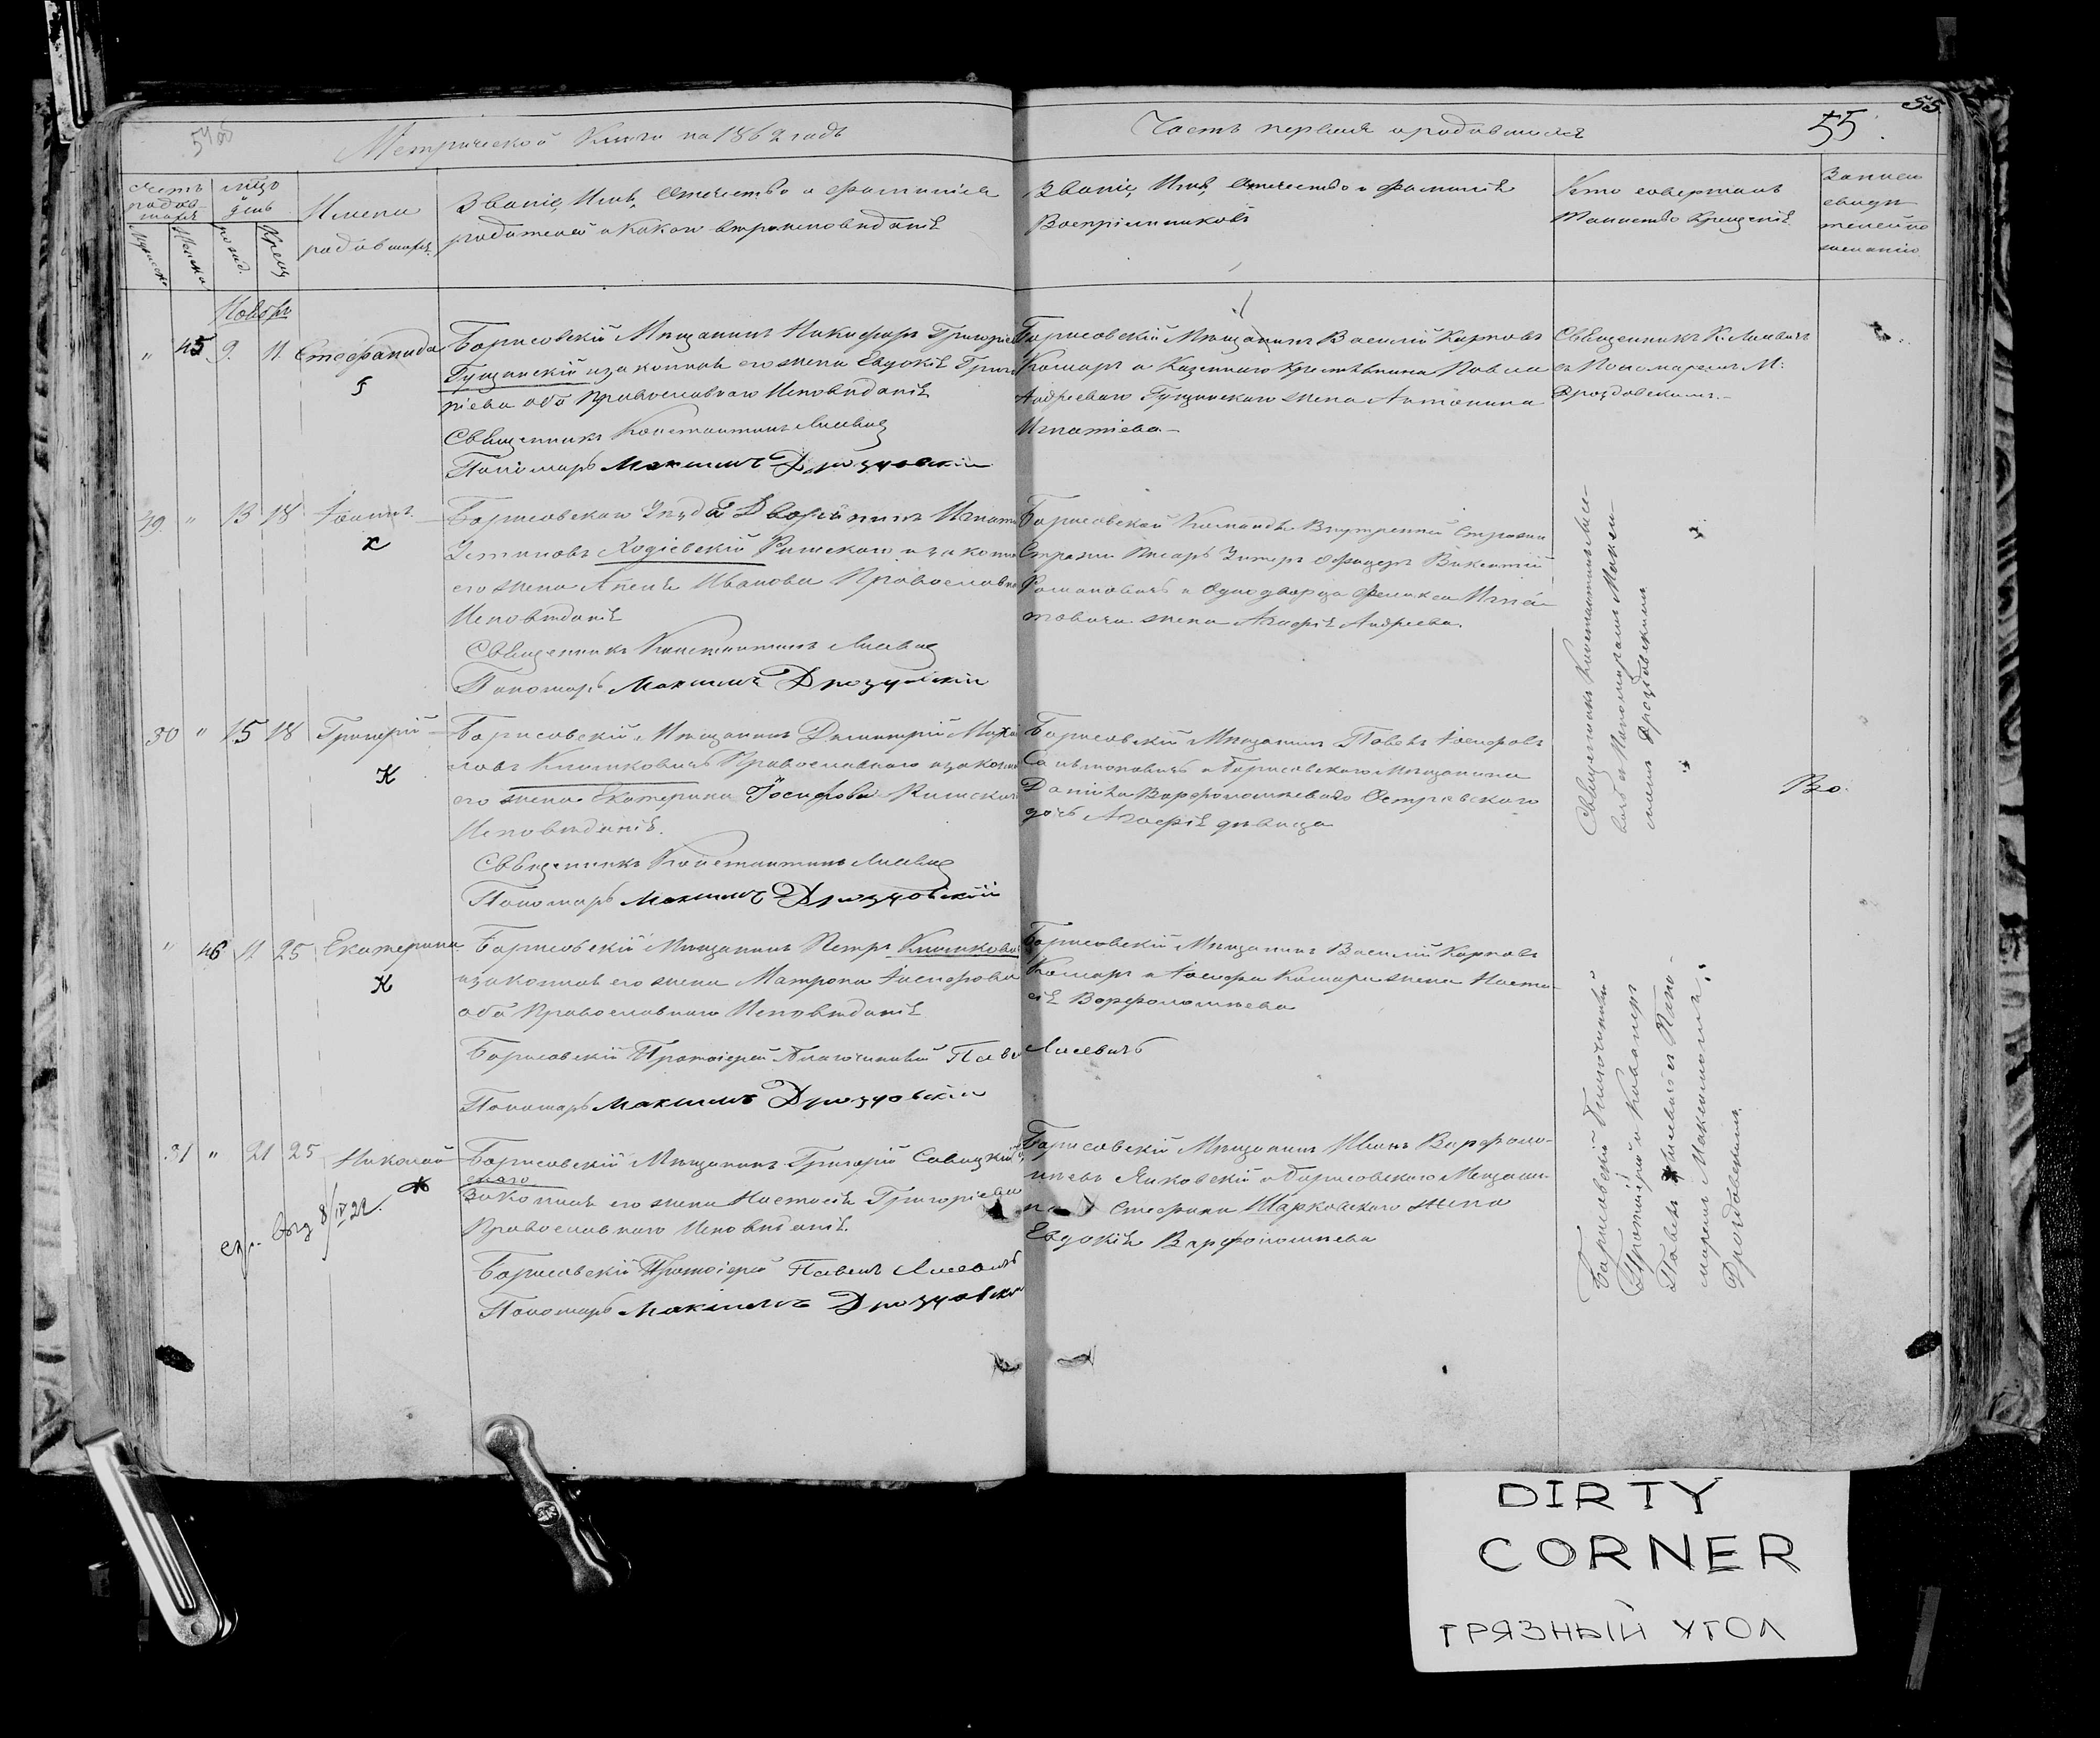 55.
55.
Метрической Книги на 1862 годъ
Часть первая о родившихся
Счетъ родив-
шихся
Мѣсяцъ
день
Мужеска
Женска
рожд.
Крещ.
Имена
родившихъ
Званіе, Имя, Отечество и фамилія
родителей и какого вѣроисповѣданія
Званіе, Имя, Отечество и Фамилія
Воспріемниковъ
Кто совершалъ
Таинство Крещенія
Ноябрь
" 45 9. 11. Стефанида
Борисовскій Мѣщанинъ Никифоръ
Гущинскій и законная его жена Евдокія
ріева оба Православнаго Исповѣданія
Священникъ Константинъ Лисевич
Пономарь Максимъ Дроздовскій
Борисовскій Мѣщанинъ Василій Карповъ
Комаръ и Казеннаго Крестьянина Павла
Андреева Гущинскаго жена Антонина
Игнатіева
Священникъ К. Лисевичъ
съ Пономаремъ М:
Дроздовскимъ.
" 13 18 Іоаннъ
Борисовскаго Уѣзда Дворянинъ
Устиновъ Ходіевскій Римскаго и закон
его жена Иванова Православн
Исповѣданія
Священникъ Константинъ Лисевич
Пономарь Максимъ Дроздовскій
Борисовской Команды Внутренней Стражи
Писарь Унтеръ Офицеръ Викентій
Романовичъ и Однодворца Феликса Игна
товича жена Агафія Андреева.
Священникъ Константинъ Лисе-
вичъ и Пономаремъ Макси-
момъ Дроздовскимъ
30 " 15 18 Григорій
К
Борисовскій Мѣщанинъ Димитрій Михаи
ловъ Климковичъ Православнаго и законн
его жена Екатерина Іосифова Римскаго
Исповѣданія.
Священникъ Константинъ Лисевич
Пономарь Максимъ Дроздовскій
Борисовскій Мѣщанинъ Павелъ Іосифовъ
и Борисовскаго Мѣщанина
Варфоломѣевъ Островскаго
дочь Агафія дѣвица
" 46 11 25 Екатерина
К
Борисовскій Мѣщанинъ Петръ Климкови
и законная его жена Матрона Іосифова
оба Православнаго Исповѣданія
Борисовскій Протоіерей Благочинный Паве Лисевичъ
Пономарь Максимъ Дроздовскій
Борисовскій Мѣщанинъ Василій Карповъ
Комаръ и Іосифа Комара жена Наста-
сія Варфоломѣева
31 " 21 25 Николай
Борисовскій Мѣщанинъ Григорій Савицкій
Законная его жена Настасія Григоріева
Православнаго Исповѣданія.
Борисовскій Протоіерей Павелъ Лисевичъ
Пономарь Максимъ Дроздовскі
Борисовскій Мѣщанинъ Иванъ Варфоло-
мѣевъ Янковскій и Борисовскаго Мѣщани-
на Стефана Шарковскаго жена
Евдокія Варфоломѣева
Борисовскій Благочинный
Протоіерей и Кавалеръ
Павелъ Лисевичъ съ Поно-
маремъ Максимомъ
Дроздовскимъ
DIRTY
CORNER
ГРЯЗНЫЙ УГОЛ